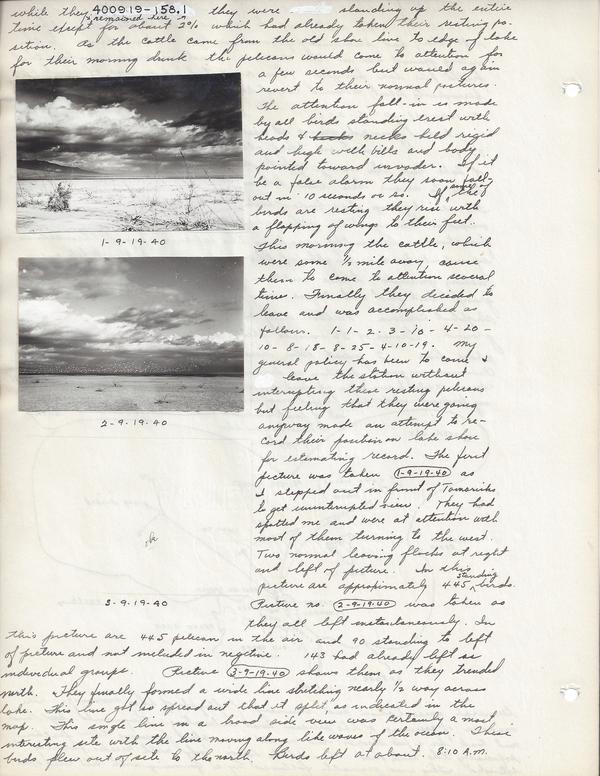 while they 400919-158.1 they were standing up the entire
remained here
time except for about 2% which had already taken their resting po-
sition. As the cattle came from the old shore line to edge of lake
for their morning drink the pelicans would come to attention for
a few seconds but would again
revert to their normal postures.
The attention fall-in is made
by all birds standing erect with
heads & necks held rigid
and high with bills and body
pointed toward invader. If it
be a false alarm they soon fall-
out in 10 seconds or so. If any of the
birds are resting they rise with
a flapping of wings to their feet.
1-9-19-40
This morning the cattle, which
were some 1/2 mile away, cause
them to come to attention several
time. Finally they decided to
leave and was accomplished as
follows. 1-1-2-3-10-4-20-
10-8-18-8-25-4-10-19. My
general policy has been to come &
leave the station without
interrupting these resting pelicans
but feeling that they were going
2-9-19-40
anyway made an attempt to re-
cord their position on lake shore
for estimating record. The first
picture was taken 1-9-19-40 as
I stepped out in front of Tamarisks
to get uninterrupted view. They had
spotted me and were at attention with
most of them turning to the west.
Two normal leaving flocks at right
and left of picture. In this
picture are approximately 445 standing birds.
3-9-19-40
Picture no. 2-9-19-40 was taken as
they all left instantaneously. In
this picture are 445 pelican in the air and 90 standing to left
of picture and not included in negative. 143 had already left as
individual groups. Picture 3-9-19-40 shows them as they trended
north. They finally formed a wide line stretching nearly 1/2 way across
lake. This line got so spread out that it split, as indicated in the
map. This single line in a broad side view was certainly a most
interesting site with the line moving along like waves of the ocean. These
birds flew out of site to the north. Birds left at about 8:10 A.M.